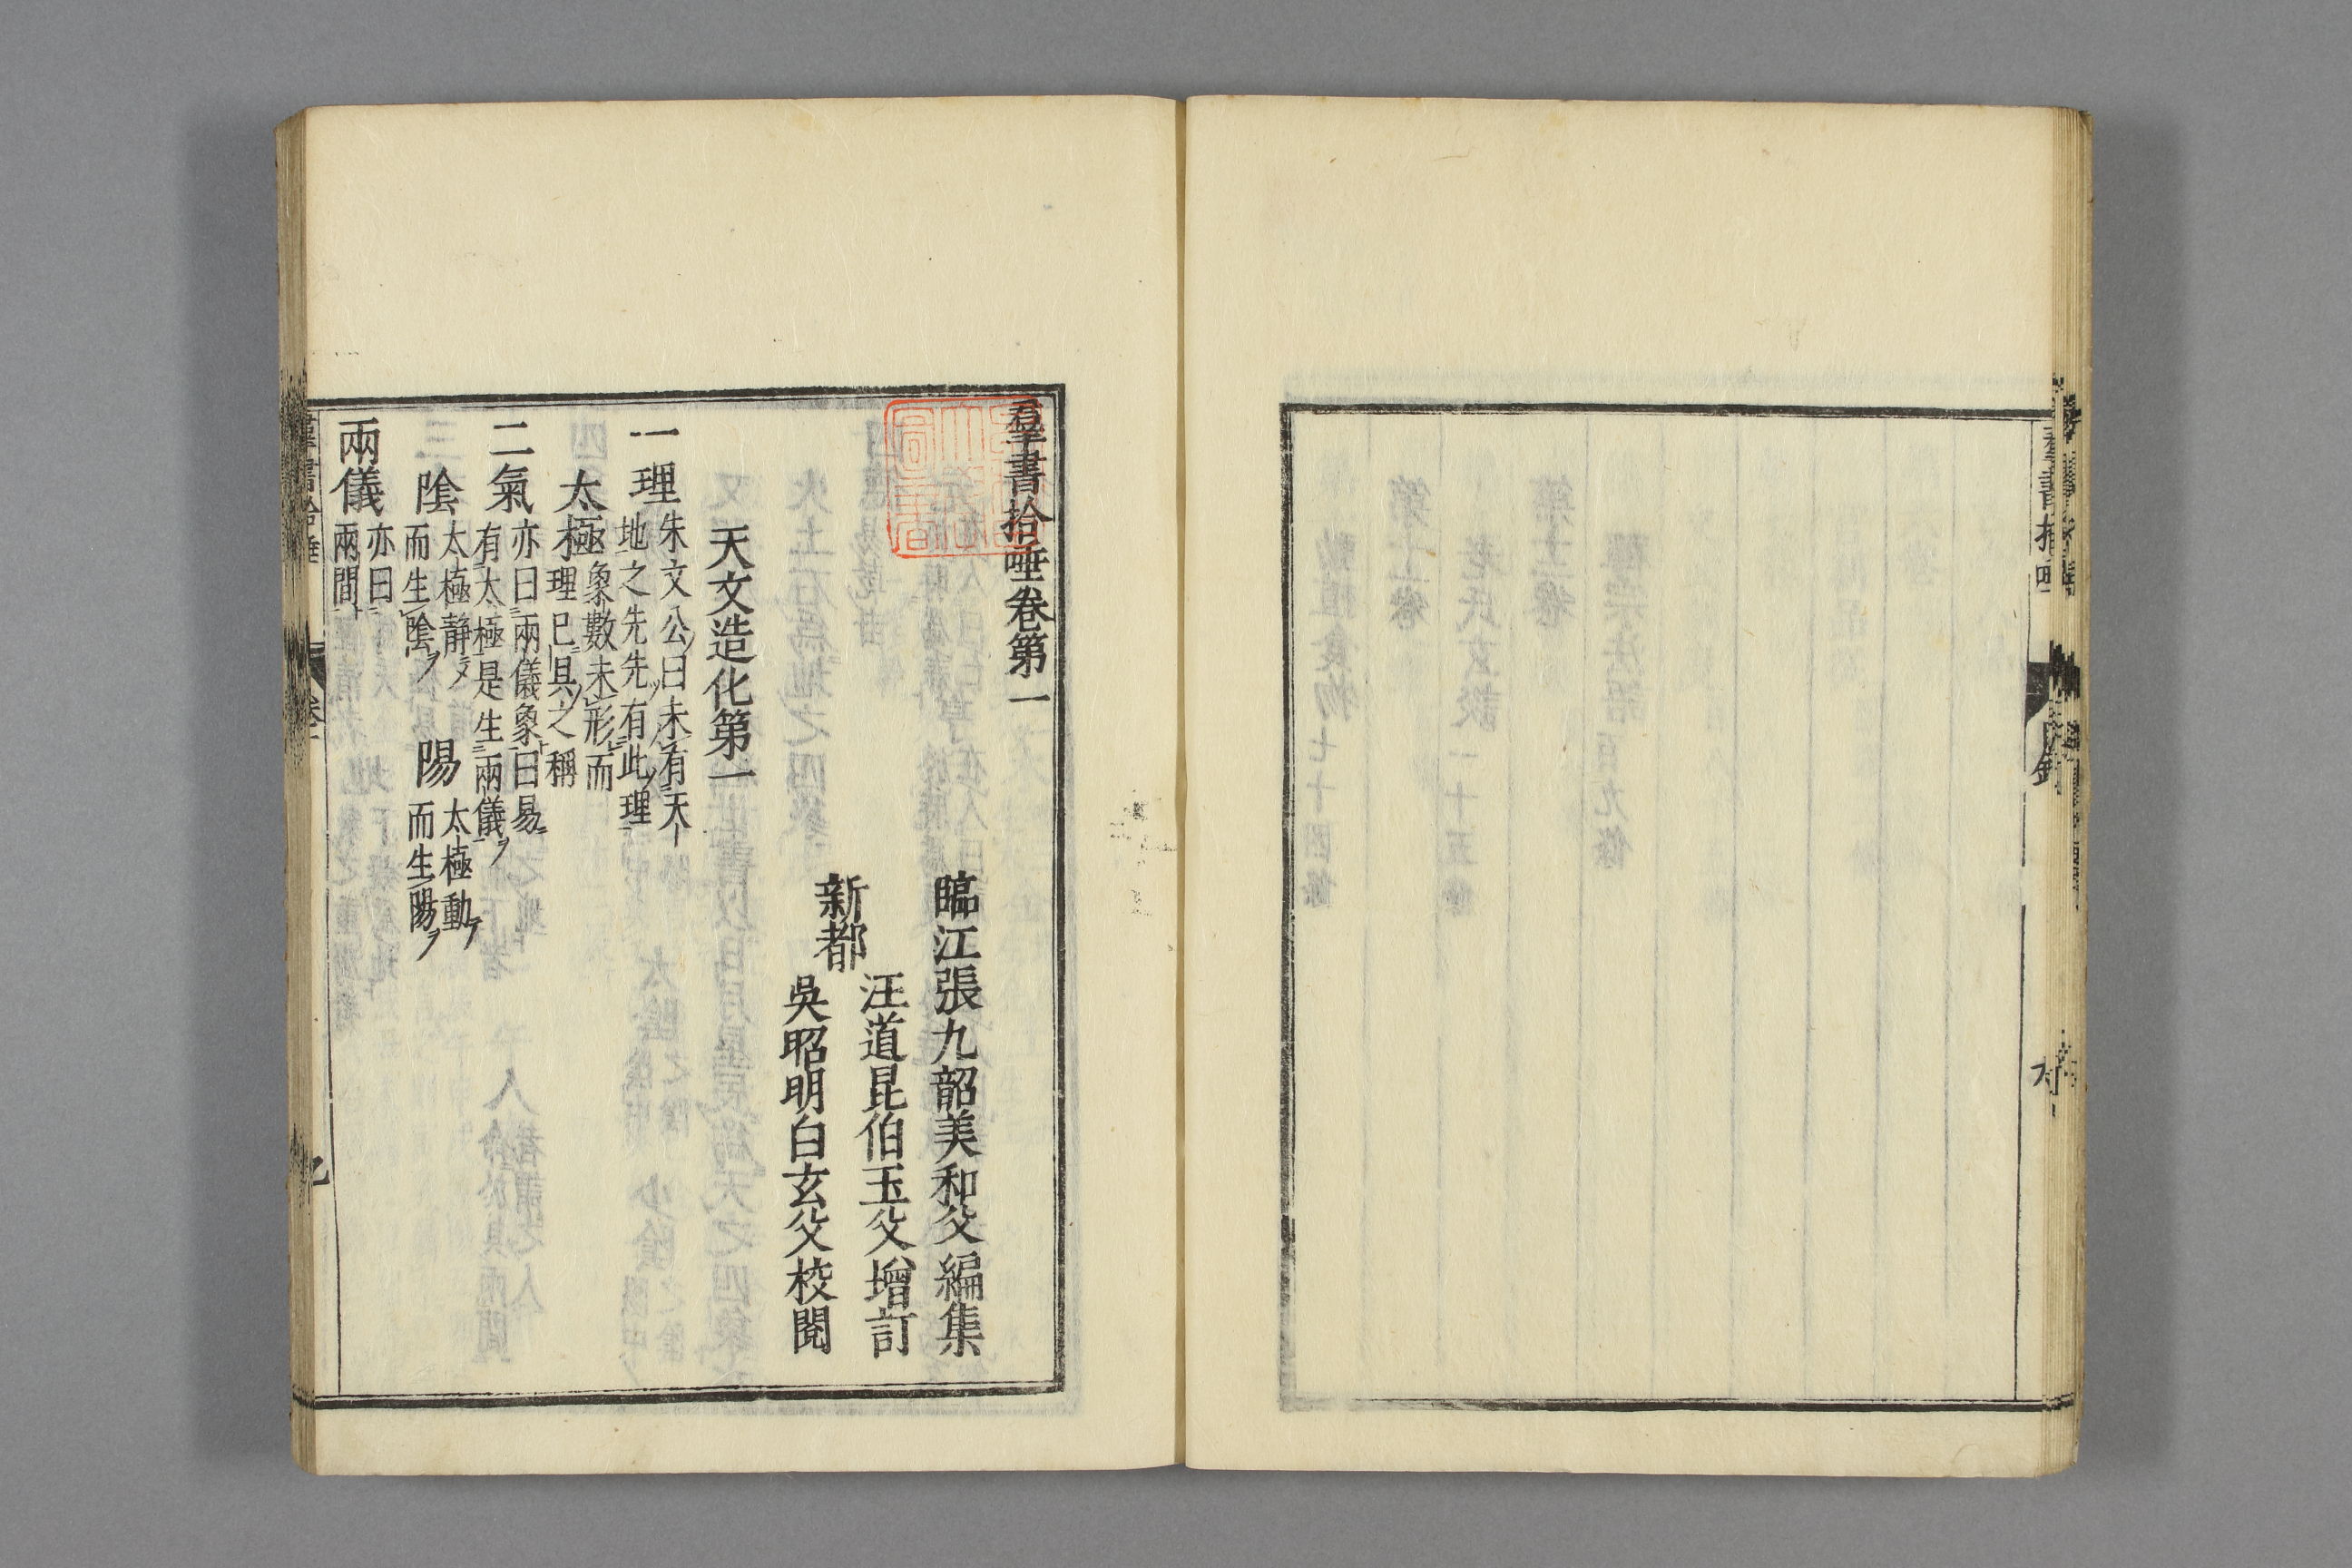 羣書拾唾卷第一
臨江張九韶美和父編集
新都
汪道昆伯玉父增訂
吳昭明白玄父校閱
天文造化第一
一理
朱文公曰未有天
地之先先有此理
太極
象數未形而
才理已具之稱
二氣
亦曰兩儀象曰易
有太極是生兩儀
陰
太極靜
而生陰
陽
太極動
而生陽
兩儀
亦曰
兩間